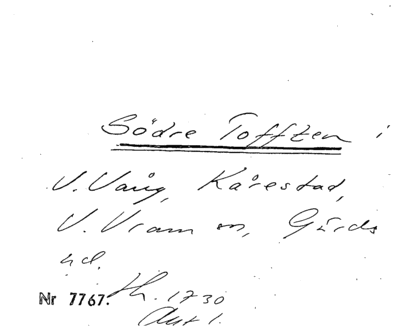 Södre Tofften i
V. Vång, Kårestad,
V. Vram sn, Gärds
hd.
Nr 7767. Th. 1730
Akt 1.